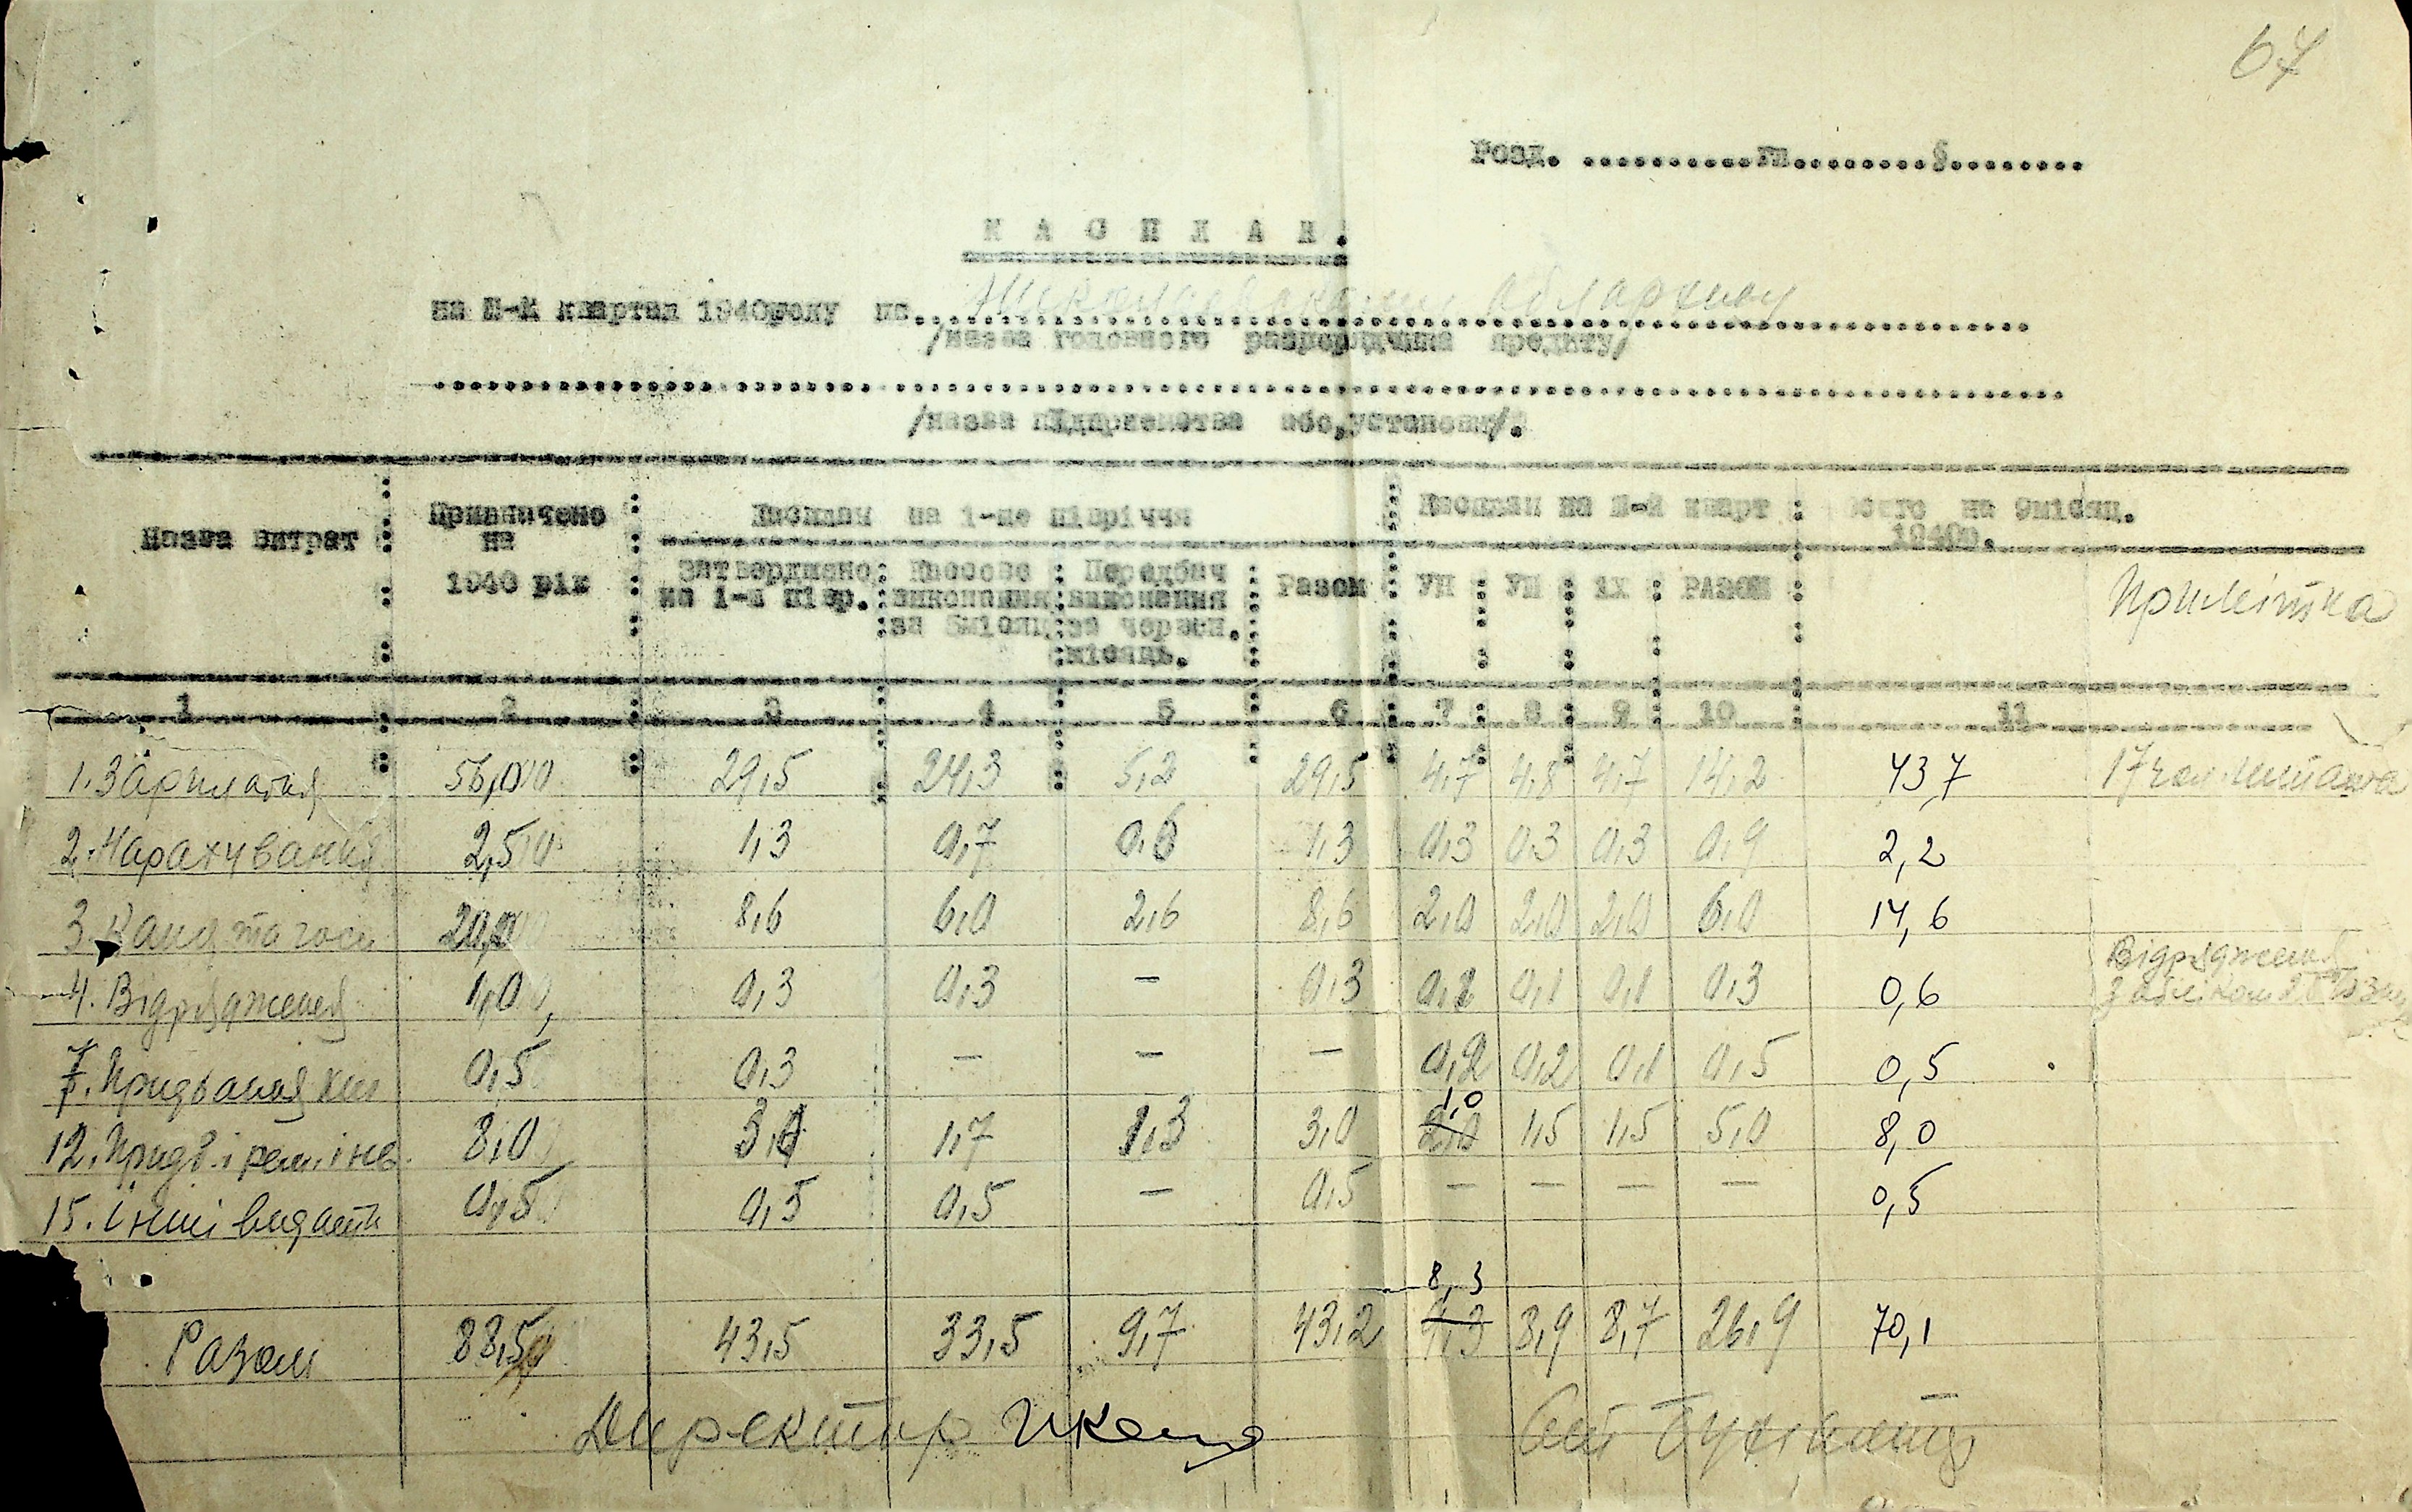 67
Розд. ...........гл.........§.........
К А С П Л А Н.
на Ш-й квартал 1940року по.......... облархіву
/назва головного розпорядчика кредиту/
/назва підприємства або,установи/.
Назва витрат Призначено на 1940 рік Касплан на 1-ше півріччя Касплан на Ш-й кварт Всего на 9місяц. 1940р.
Затверджено на 1-е півр. Кассове виконання за 5місяц. Передбач виконання за червен. місяць. Разом УП УШ 1Х РАЗОМ Примітка
1 2 3 4 5 6 7 8 9 10 11
1. Зарплатня 56,0 29,5 24,3 5,2 29,5 4,7 4,8 4,7 14,2 43,7 17 чол. штата
2. Нарахування 2,5 1,3 0,7 0,6 1,3 0,3 0,3 0,3 0,9 2,2
3. Канц та госп 20,0 8,6 6,0 2,6 8,6 2,0 2,0 2,0 6,0 14,6
4. Відрядження 1,0 0,3 0,3 — 0,3 0,1 0,1 0,1 0,3 0,6 Відрядження
7. Придбання кн 0,5 0,3 — — — 0,2 0,2 0,1 0,5 0,5
1,0
12. Придб. і рем. інв. 8,0 3,0 1,7 1,3 3,0 2,0 1,5 1,5 5,0 8,0
15. Інші видатк 0,5 0,5 0,5 — 0,5 — — — — 0,5
8,3
Разом 88,5 43,5 33,5 9,7 43,2 9,3 8,9 8,7 26,9 70,1
Директор Бухгалтер